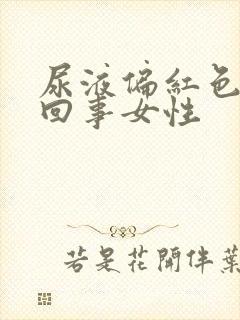 尿液偏紅色
回事女性
若是花開伴葉